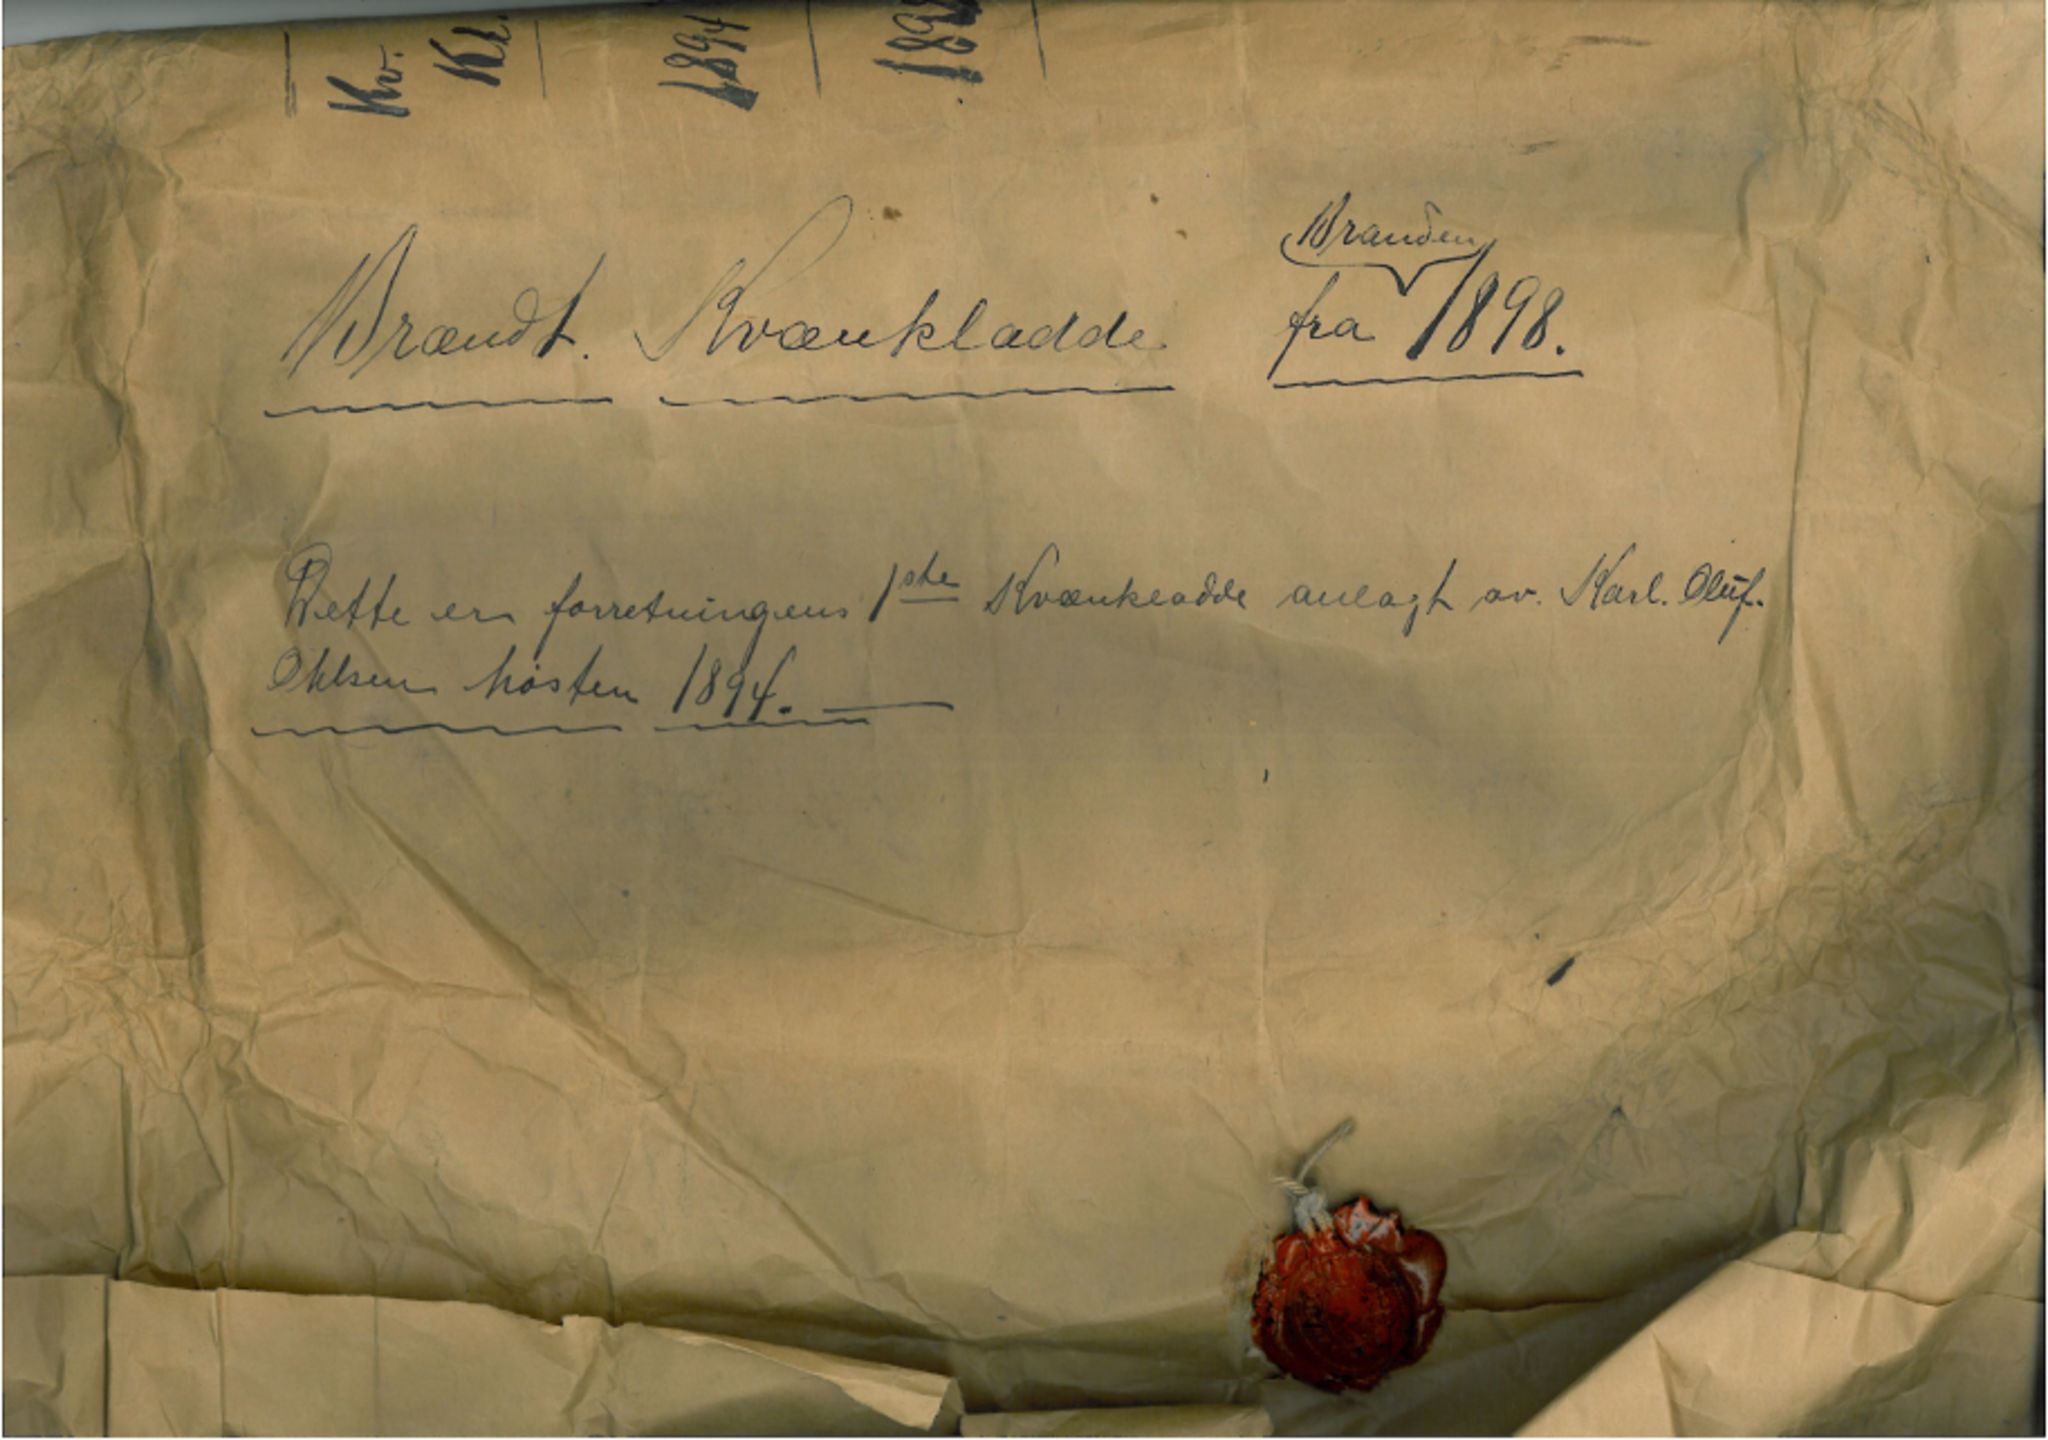 Kv.
Kl.
1894
189
Branden
Brændt. Kvænkladde fra 1898.
Dette er forretningens 1ste Kvænkladde anlagt av. Karl. Oluf.
Ohlsen høsten 1894.